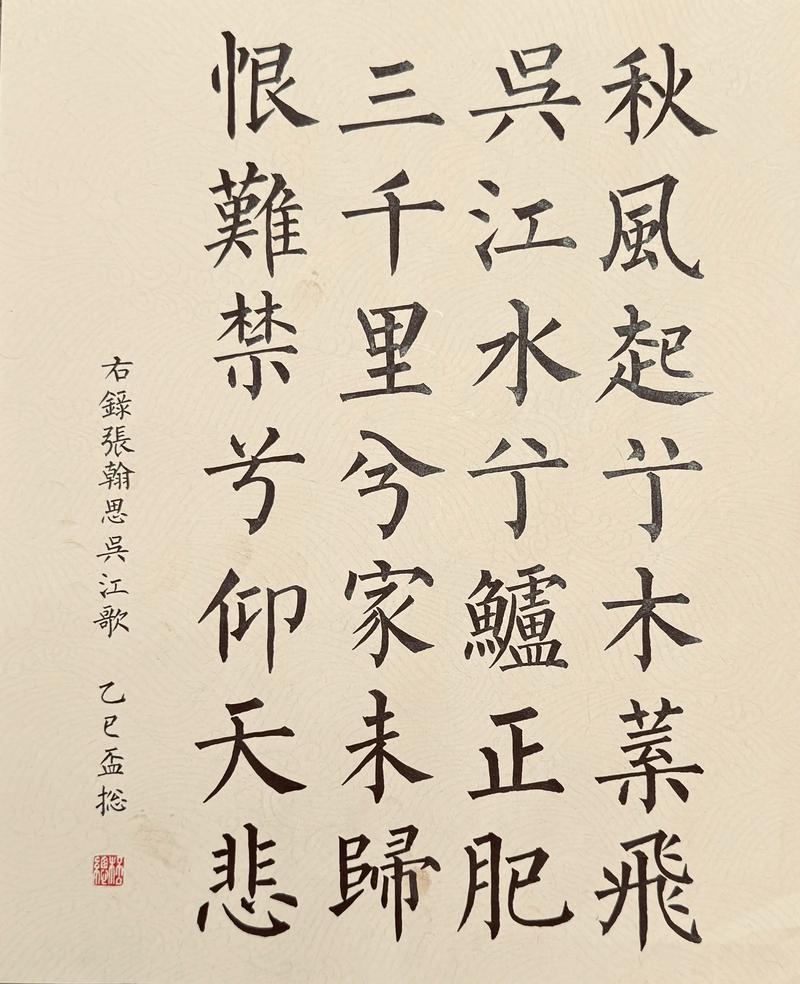 秋風起兮木葉飛
吳江水兮鱸正肥
三千里兮家未歸
恨難禁兮仰天悲
右錄張翰思吳江歌 乙巳盃總